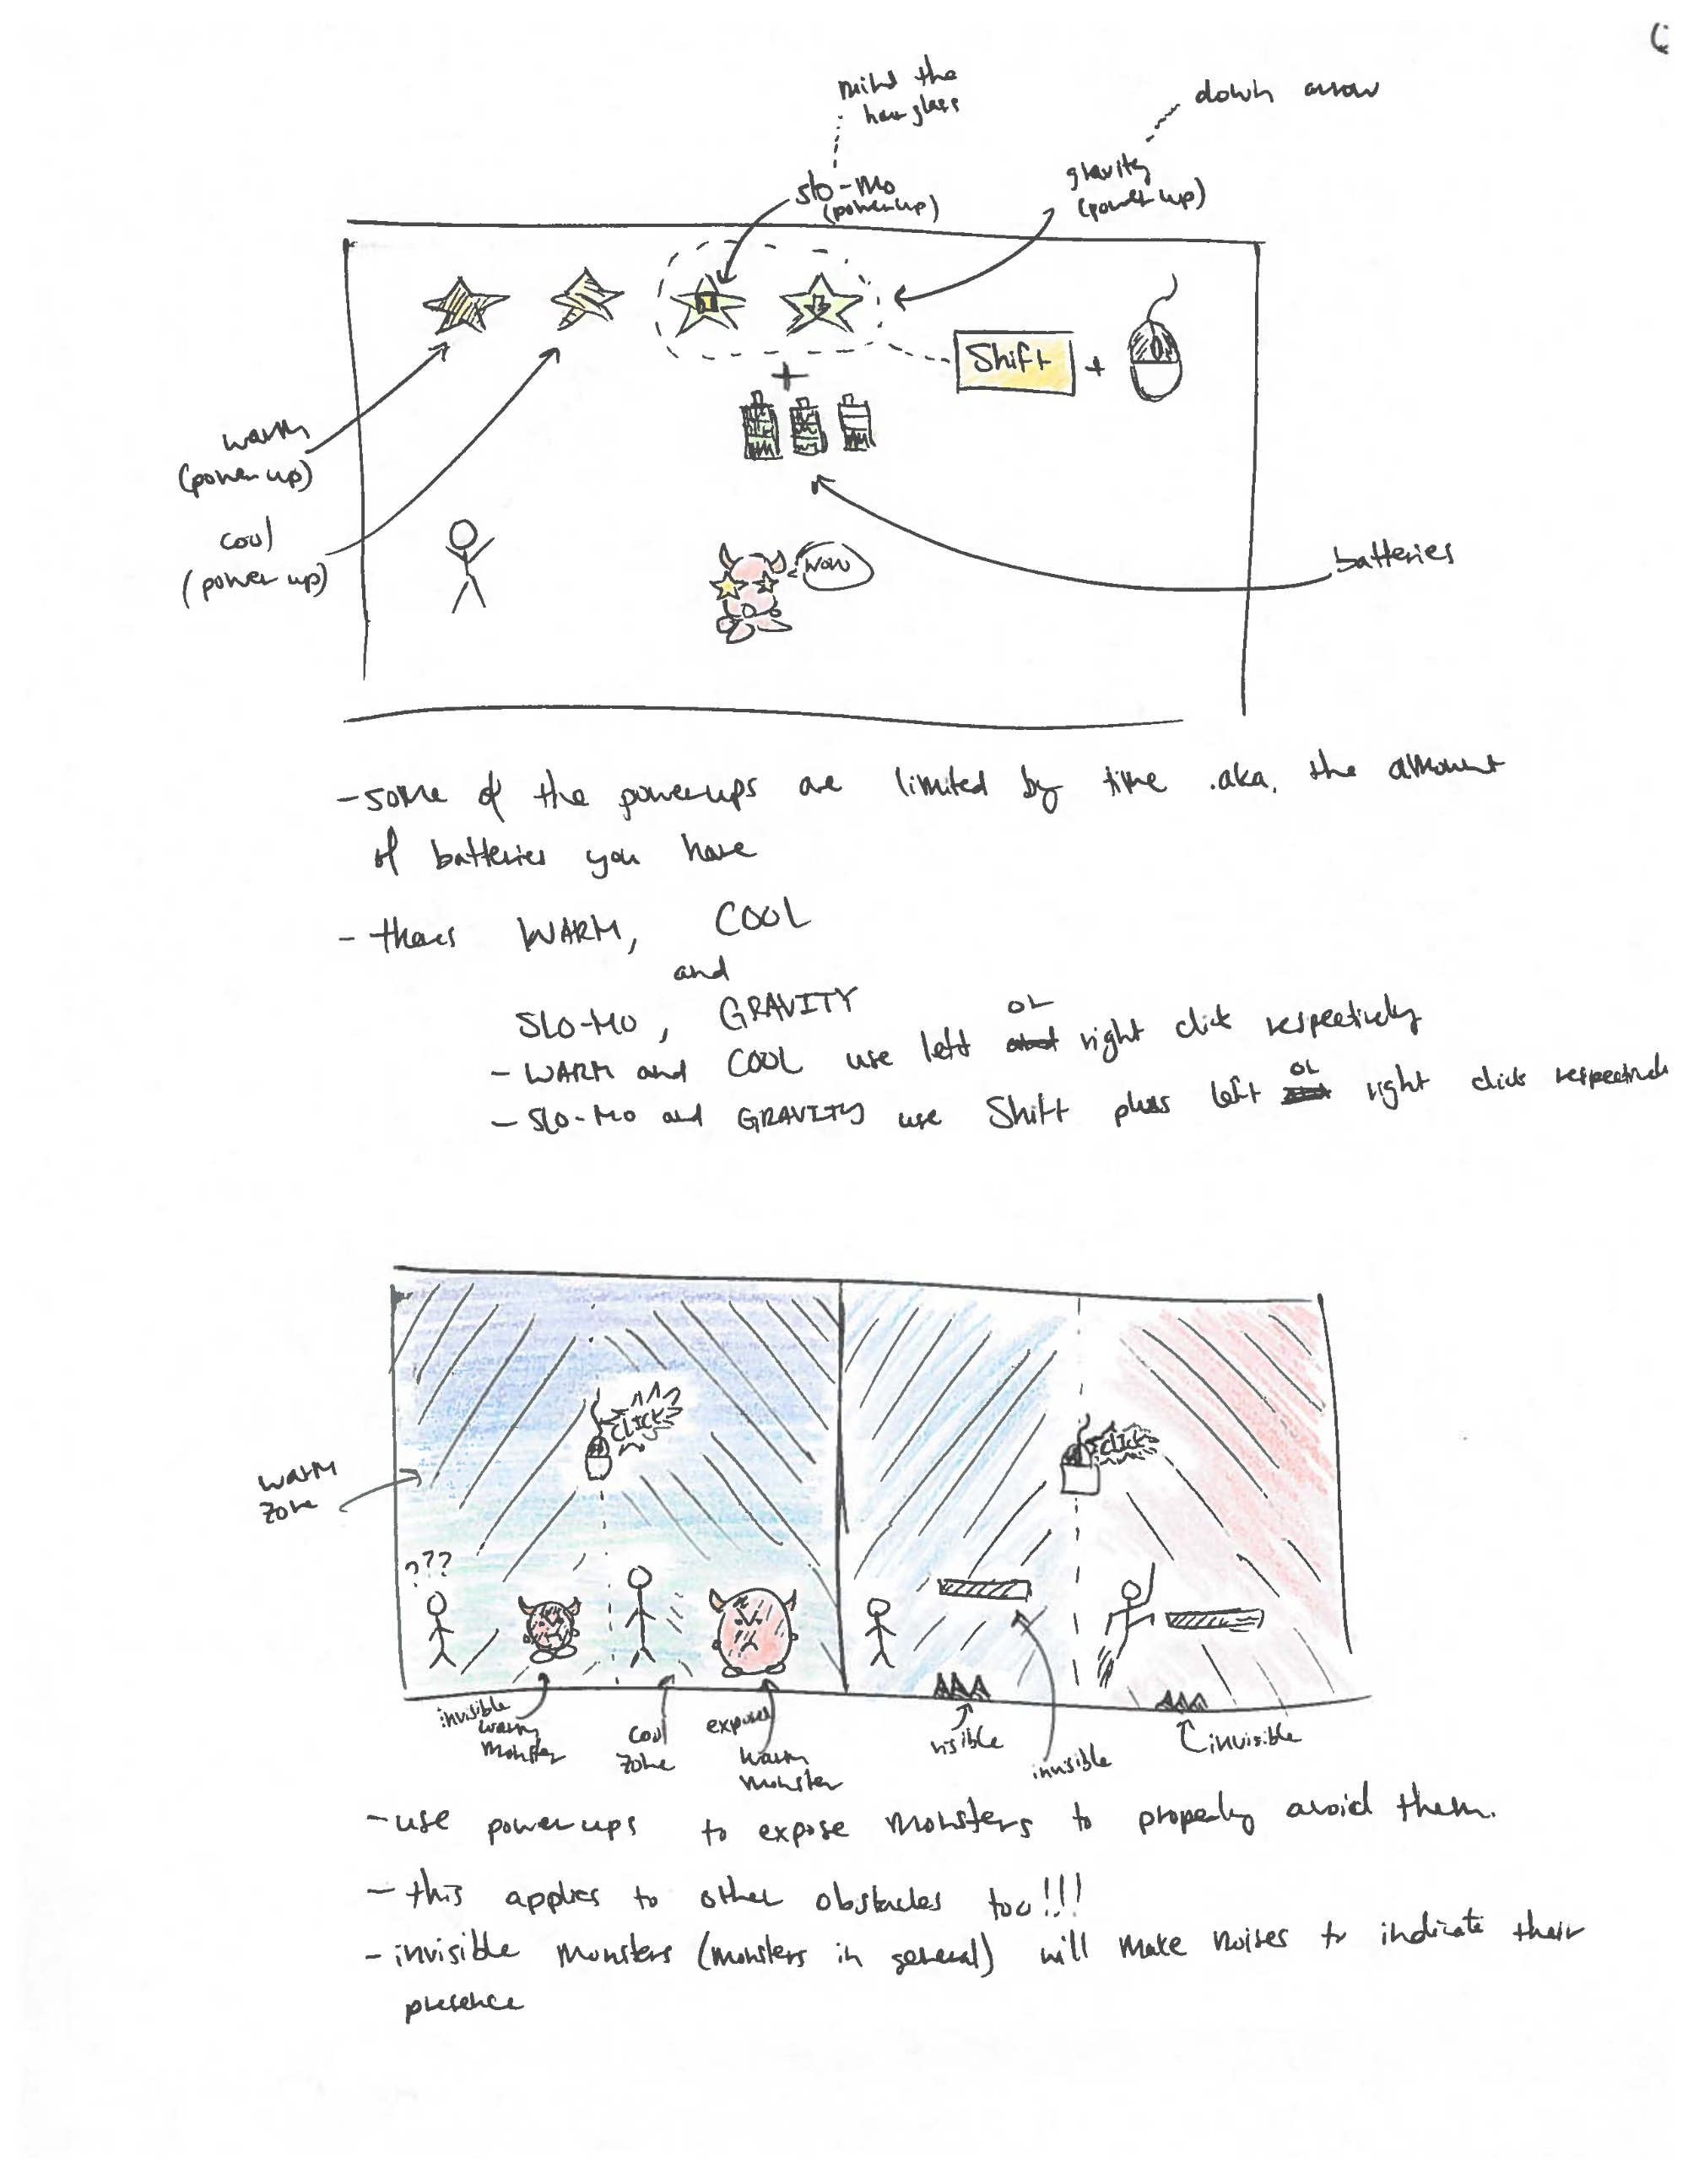 mind the
hourglass
down arrow
slo-mo
(power up)
gravity
(power up)
Shift +
+
warm
(power up)
cool
(power up)
WOW
batteries
- some of the powerups are limited by time .aka. the amount
of batteries you have
- theres WARM, COOL
and
SLO-MO, GRAVITY
- WARM and COOL use left or right click respectively
- SLO-MO and GRAVITY use Shift plus left or right click
CLICK
CLICK
warm
zone
???
invisible
warm
monster
cool
zone
exposed
warm
monster
visible
invisible
invisible
- use power ups to expose monsters to properly avoid them.
- this applies to other obstacles too!!!
- invisible monsters (monsters in general) will make noises to indicate their
presence